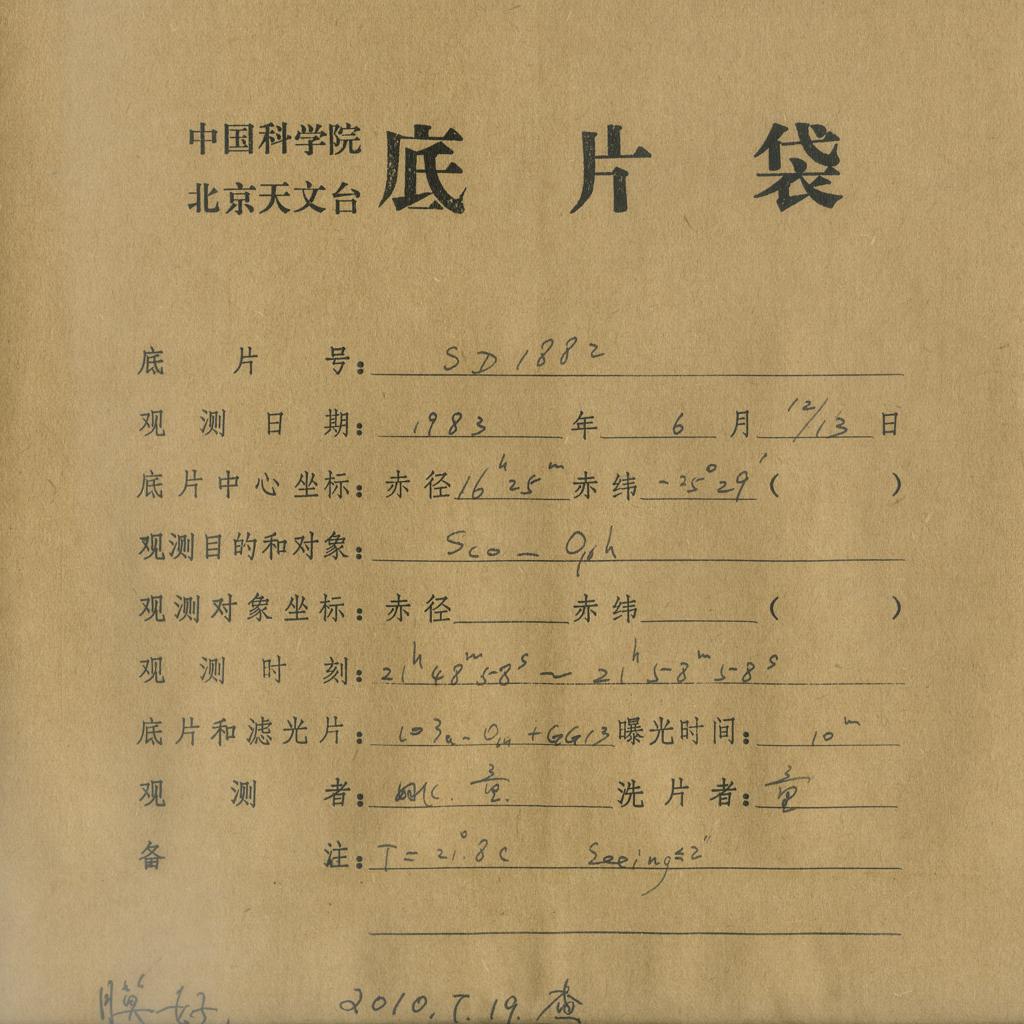 中国科学院
北京天文台 底片袋
底片号： SD1882
观测日期： 1983 年 6 月 12/13 日
底片中心坐标： 赤径 16h25m 赤纬 -25°29′ ( )
观测目的和对象： Sco - Oph
观测对象坐标： 赤径 赤纬 ( )
观测时刻： 21h48m58s ~ 21h58m58s
底片和滤光片： 103a-O + GG13 曝光时间： 10m
观测者： 童 洗片者： 童
备注： T = 21°.8C Seeing≤2″
膜好. 2010.7.19. 查